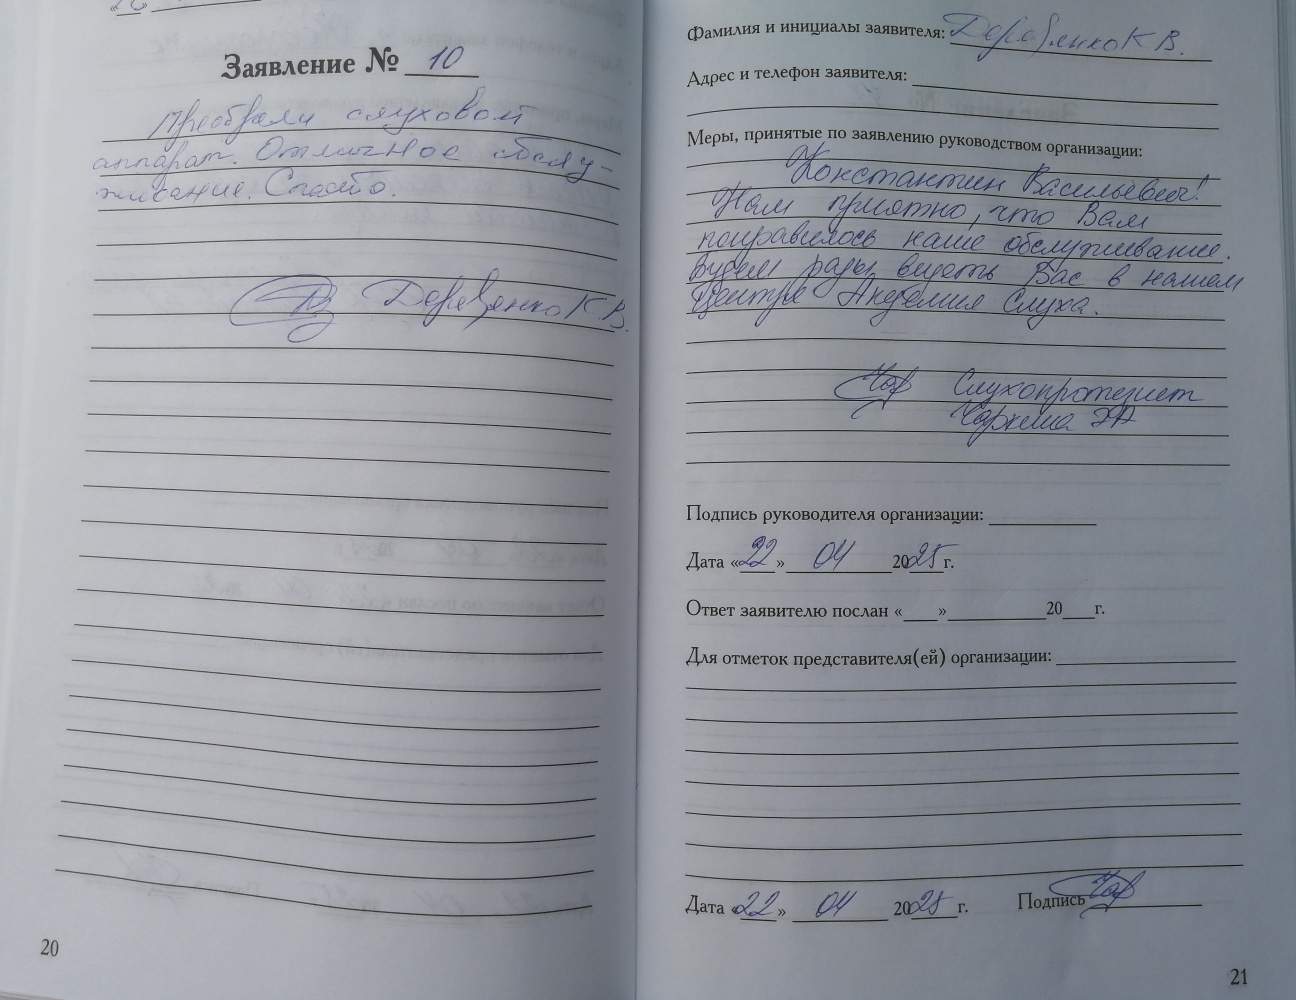 Заявление № 10
Преобрели слуховой
аппарат. Отличное обслу-
живание. Спасибо.
Деревренко К В.
20
Фамилия и инициалы заявителя: Деревренко К В.
Адрес и телефон заявителя:
Меры, принятые по заявлению руководством организации:
Константин Васильевич!
Нам приятно, что Вам
понравилось наше обслуживание.
Будем рады видеть Вас в нашем
Центре Академия Слуха.
Слухопротезист
Подпись руководителя организации:
Дата «22» 04 2025 г.
Ответ заявителю послан « » 20 г.
Для отметок представителя(ей) организации:
Дата «22» 04 2025 г. Подпись
21